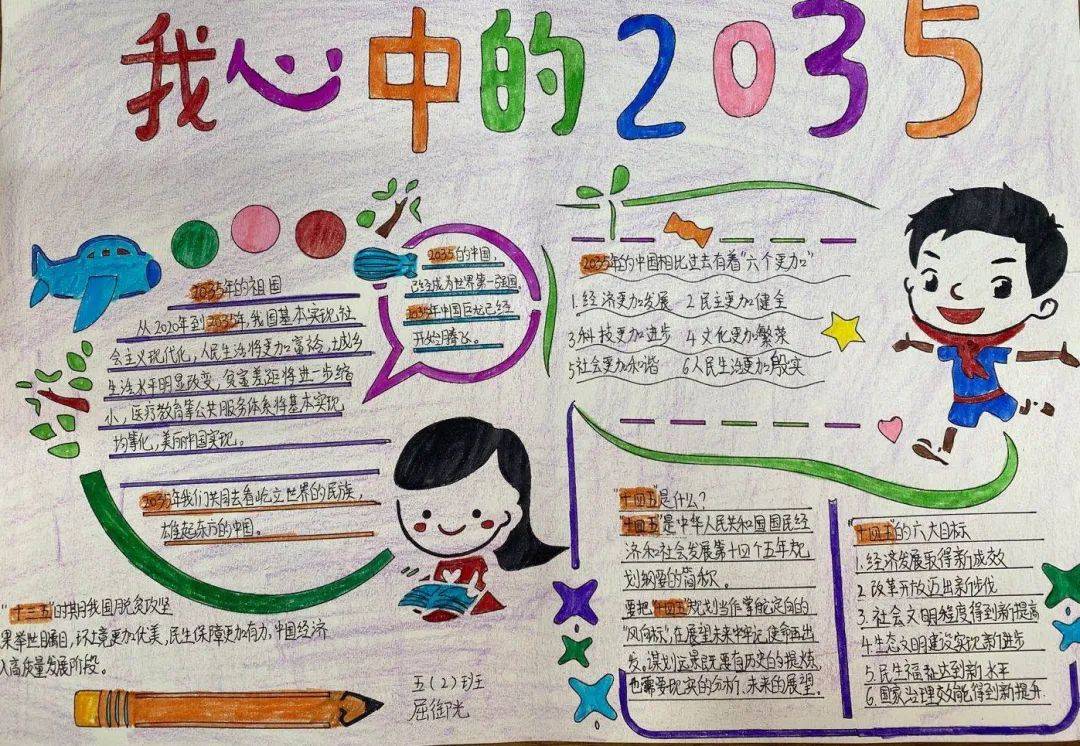 我心中的2035
2035年的祖国
从2020年到2035年,我国基本实现社
会主义现代化,人民生活将更加富裕,城乡
生活水平明显改变,贫富差距将进一步缩
小,医疗教育等公共服务体系将基本实现
均等化,美丽中国实现。
2035年我们共同去看屹立世界的民族,
雄起东方的中国。
2035的中国,
已经成为世界第一强国,
2035年中国巨龙已经
开始腾飞。
2035年的中国相比过去有着"六个更加"
1.经济更加发展 2.民主更加健全
3科技更加进步 4文化更加繁荣
5社会更加和谐 6人民生活更加殷实
"十三五"时期我国脱贫攻坚
果举世瞩目,环境更加优美,民生保障更加有力,中国经济
入高质量发展阶段。
五(2)班
屈御光
"十四五"是什么?
"十四五"是中华人民共和国国民经
济和社会发展第十四个五年规
划纲要的简称。
要把"十四五"规划当作掌舵定向的
"风向标",在展望未来中牢记使命再出
发。谋划远景既要有历史的提炼,
也需要现实的分析、未来的展望。
"十四五"的六大目标
1.经济发展取得新成效
2.改革开放迈出新步伐
3.社会文明程度得到新提高
4.生态文明建设实现新进步
5.民生福祉达到新水平
6.国家治理效能得到新提升